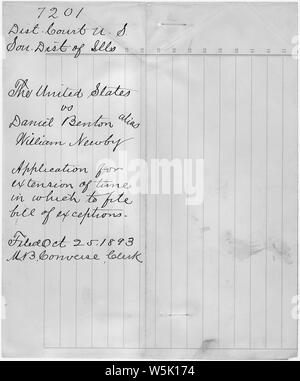 7201
Dist. Court U. S.
Sou. Dist of Ills
The United States
vs
Daniel Benton alias
William Newby
Application for
extension of time
in which to file
bill of exceptions.
Filed Oct 25. 1893
M B Converse Clerk
alamy
Image ID: W5K174
www.alamy.com